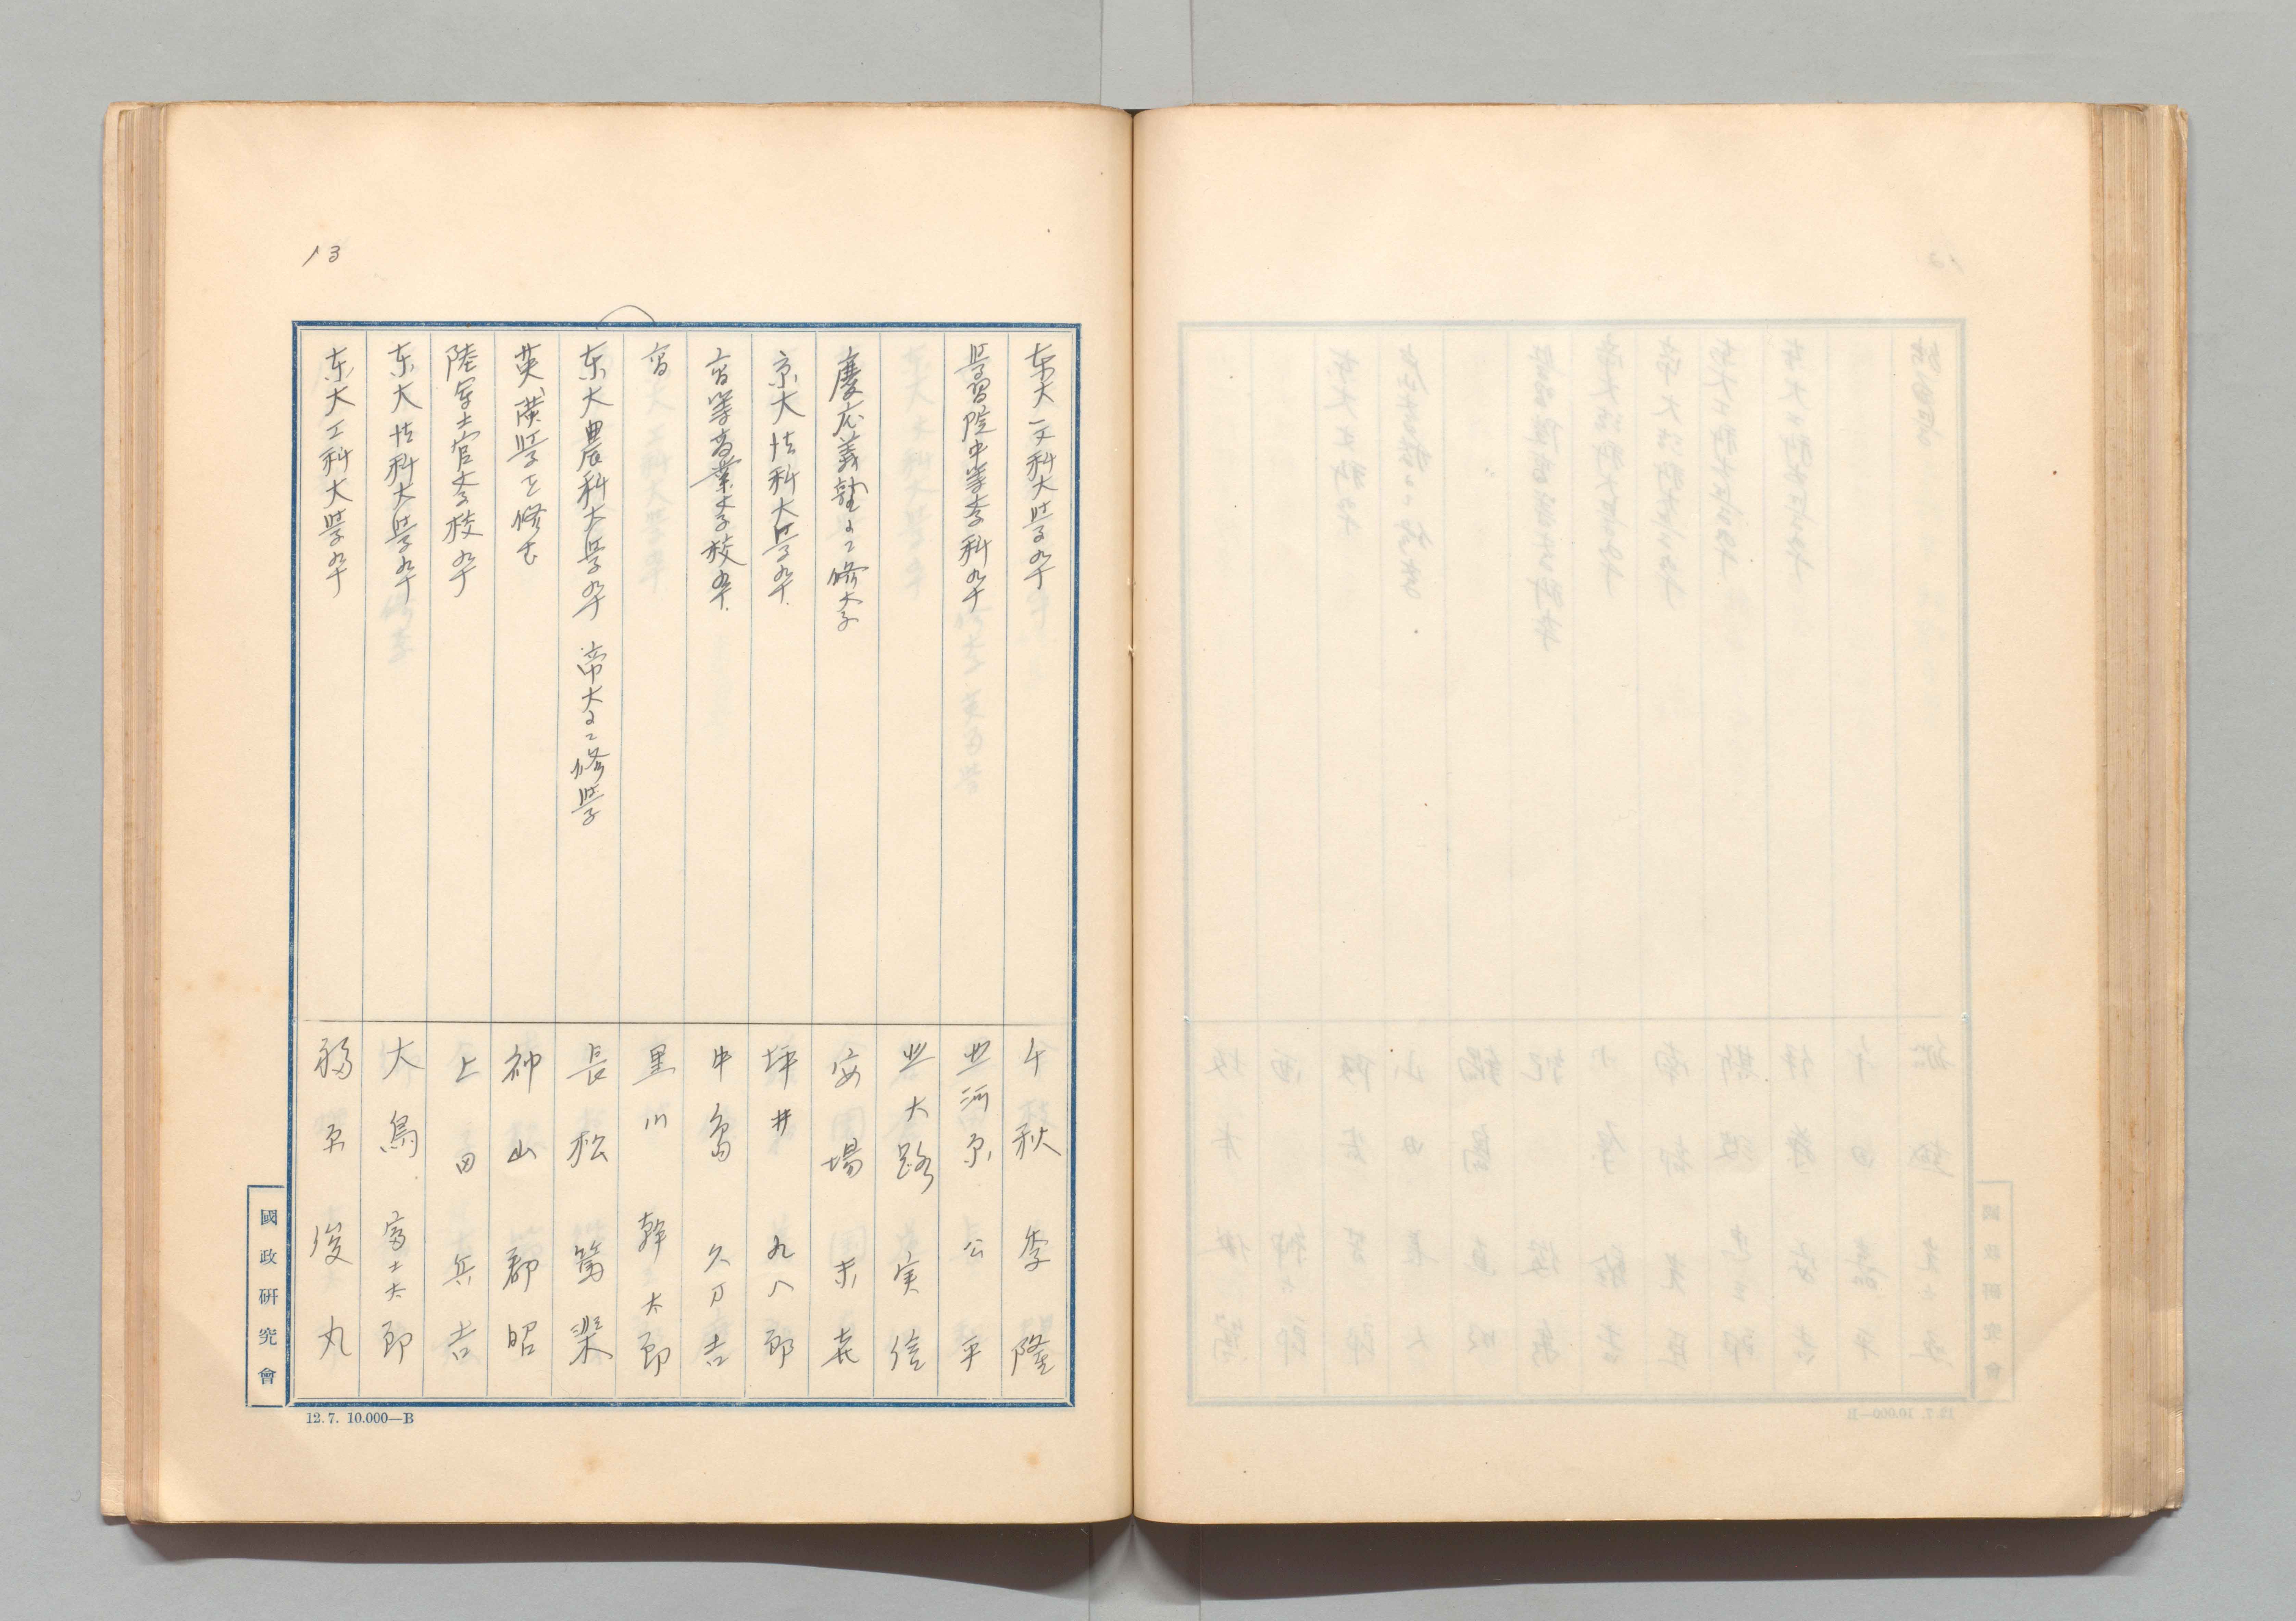 13
东大文科大学卒 千秋季隆
学習院中等学科卒 北河原公平
北大路実信
慶応義塾ニ修学 安場末喜
京大法科大学卒 坪井九八郎
高等商業学校卒 中島久万吉
黒川幹太郎
东大農科大学卒 帝大ニ修学 長松篤棐
英漢学を修む 神山郡昭
陸軍士官学校卒 上田兵吉
东大法科大学卒 大鳥富士太郎
东大工科大学卒 福原俊丸
國政研究會
12.7. 10.000—B